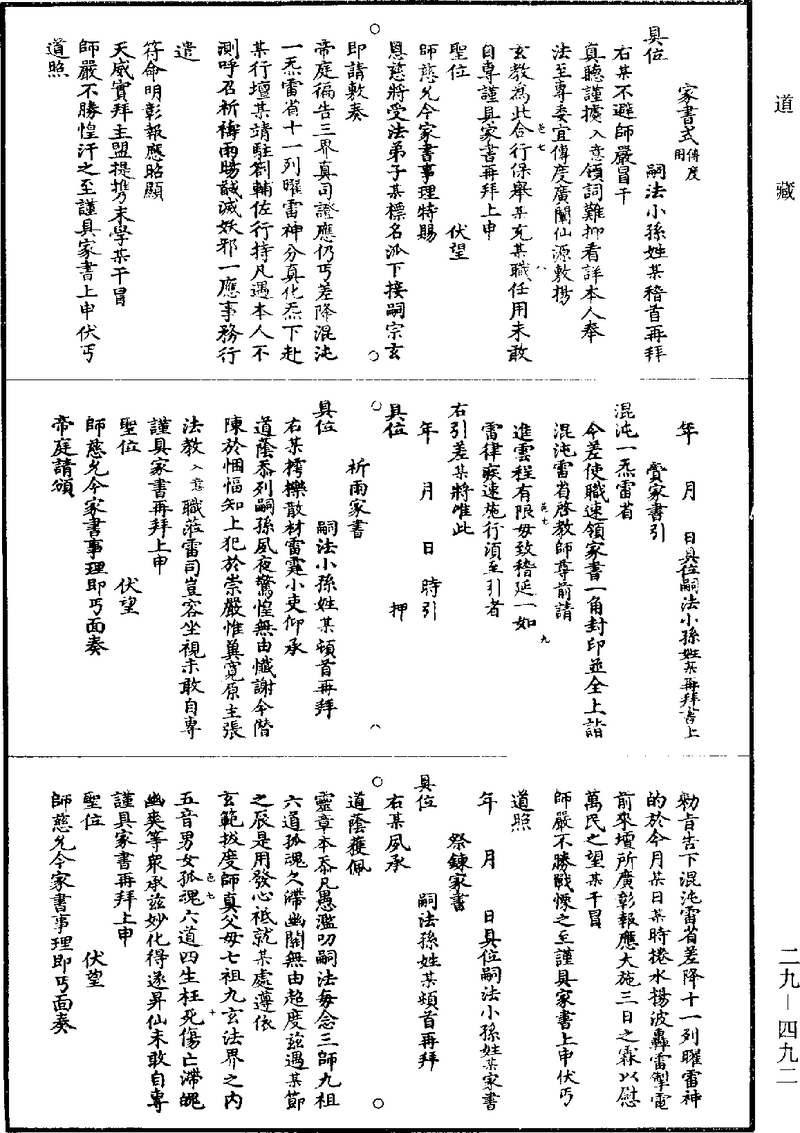 道藏
家書式傳度用
具位　嗣法小孫姓某稽首再拜
右某不避師嚴冒干
真聽謹攄入意領詞難抑看詳本人奉
法至專委宜傳度廣闡仙源敷揚
玄教為此合行保舉某充某職任用未敢
自專謹具家書再拜上申
聖位　伏望
師慈允今家書事理特賜
恩慈將受法弟子某標名派下接嗣宗玄
即請敷奏
帝庭徧告三界真司證應仍丐差降混沌
一炁雷省十一列曜雷神分真化炁下赴
某行壇某請駐劄輔佐行持凡遇本人不
測呼召祈禱雨暘誠滅妖邪一應事務行
遣
符命明彰報應昭顯
天威實拜主盟提攜末學某干冒
師嚴不勝惶汗之至謹具家書上申伏丐
道照
年　月　日具位嗣法小孫姓某再拜書上
賫家書引
混沌一炁雷省
今差使職速領家書一角封印並全上詣
混沌雷省啓教師尊前請
進雲程有限毋致稽延一如
雷律疾速施行須至引者
右引差某將惟此
年　月　日　時引
具位　押
祈雨家書
具位　嗣法小孫姓某頓首再拜
右某樗櫟散材雷霆小吏仰承
道蔭忝列嗣孫夙夜驚惶無由懺謝今僭
陳於悃愊知上犯於崇嚴惟冀寬原主張
法教入意職蒞雷司豈容坐視未敢自專
謹具家書再拜上申
聖位　伏望
師慈允今家書事理即丐面奏
帝庭請頒
勑旨告下混沌雷省差降十一列曜雷神
的於今月某日某時捲水揚波轟雷掣電
前來壇所廣彰報應大施三日之霖以慰
萬民之望某干冒
師嚴不勝戰慄之至謹具家書上申伏丐
道照
年　月　日具位嗣法小孫姓某家書
祭鍊家書
具位　嗣法孫姓某頓首再拜
右某夙承
道蔭獲佩
靈章本忝凡愚濫叨嗣法每念三師九祖
六道孤魂久滯幽關無由超度茲遇某節
之辰是用發心祇就某處遵依
玄範拔度師真父母七祖九玄法界之內
五音男女孤魂六道四生枉死傷亡滯魄
幽爽等眾承茲妙化得遂昇仙未敢自專
謹具家書再拜上申
聖位　伏望
師慈允今家書事理即丐面奏
二九—四九二